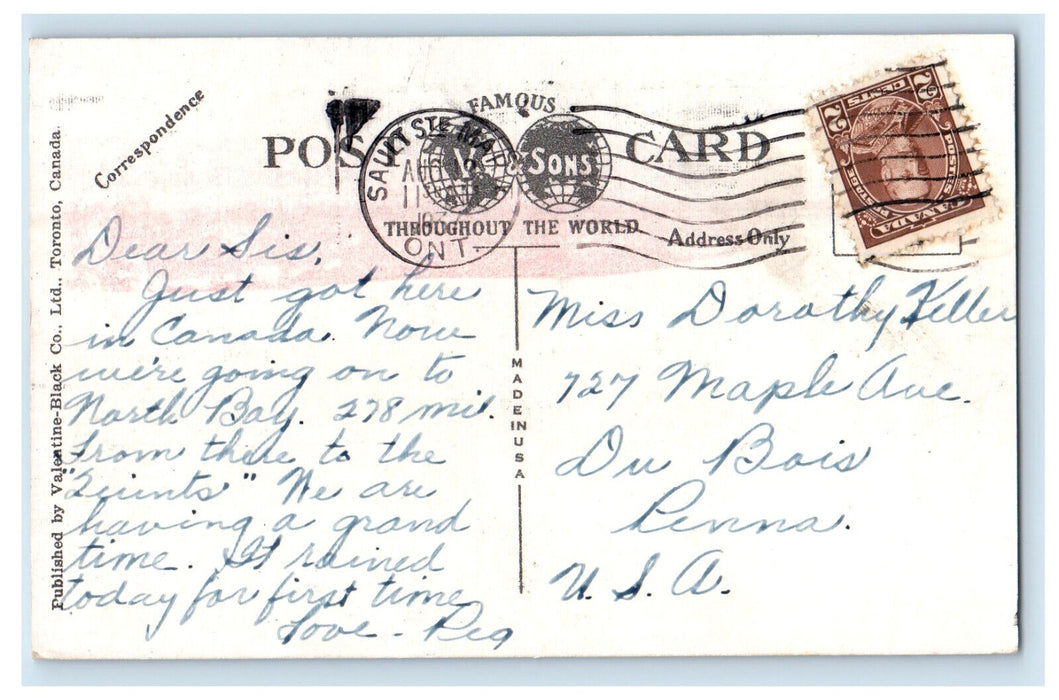 Correspondence
POST CARD
FAMOUS
& SONS
THROUGHOUT THE WORLD
Address Only
SAULT STE. MARIE
AUG
11
ONT.
2¢ CENTS 2¢
POSTES POSTAGE
CANADA
Published by Valentine-Black Co., Ltd., Toronto, Canada.
MADE IN USA
Dear Sis,
Just got here
in Canada. Now
we're going on to
North Bay. 278 mil.
From there to the
"Quints" We are
having a grand
time. It rained
today for first time
Love - Peg
Miss Dorothy Keller
727 Maple Ave.
Du Bois
Penna.
U. S. A.